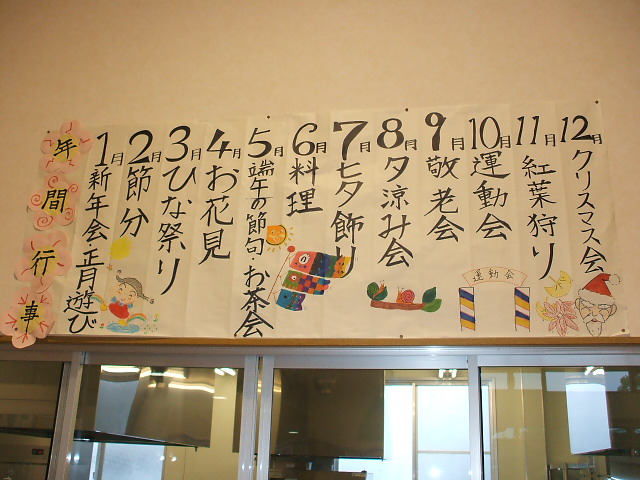 年間行事
1月 新年会 正月遊び
2月 節分
3月 ひな祭り
4月 お花見
5月 端午の節句・お茶会
6月 料理
7月 七夕飾り
8月 夕涼み会
9月 敬老会
10月 運動会
11月 紅葉狩り
12月 クリスマス会
運動会